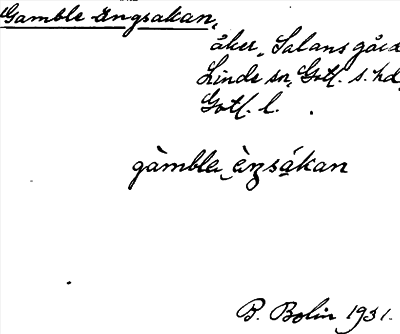 Gamble Ängsakan,
åker, Salans gård
Linde sn, Gotl. s. hd,
Gotl. l.
gàmblα ὲŋsákan
B. Bolin 1931.